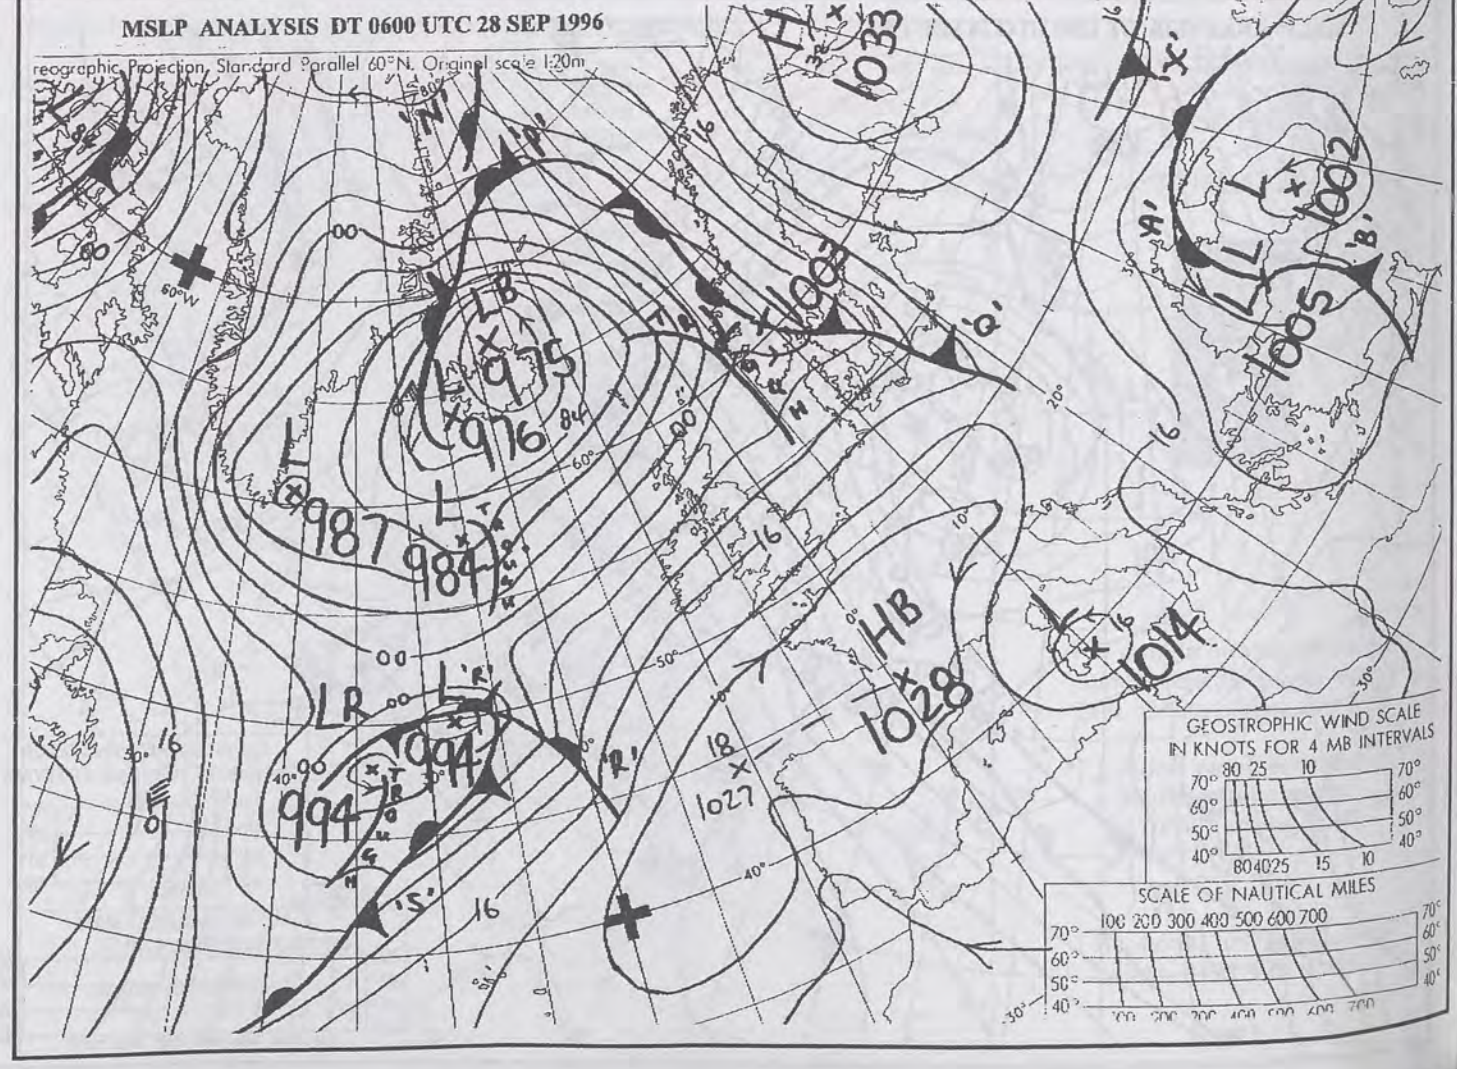 MSLP ANALYSIS DT 0600 UTC 28 SEP 1996
reographic Projection, Standard Parallel 60°N. Original scale 1:20m
H
1033
'X'
'N'
'P'
16
16
L
84
L
1002
'A'
'B'
00
00
60°W
L
L
30°
1003
L B
975
T R
L
1005
'Q'
L
976
84
00
60°
20°
16
L
987
L
984
T
R
O
U
G
H
16
10°
0°
HB
1028
L
16
1014
00
50°
10°
30°
LR
00
L
'R'
994
994
00
40°
30°
T
R
O
U
G
H
'R'
18
1027
16
50°
0
40°
'S'
16
30°
GEOSTROPHIC WIND SCALE
IN KNOTS FOR 4 MB INTERVALS
80 25 10
70° 70°
60° 60°
50° 50°
40° 40°
80 40 25 15 10
SCALE OF NAUTICAL MILES
100 200 300 400 500 600 700
70° 70°
60° 60°
50° 50°
40° 40°
100 200 300 400 500 600 700